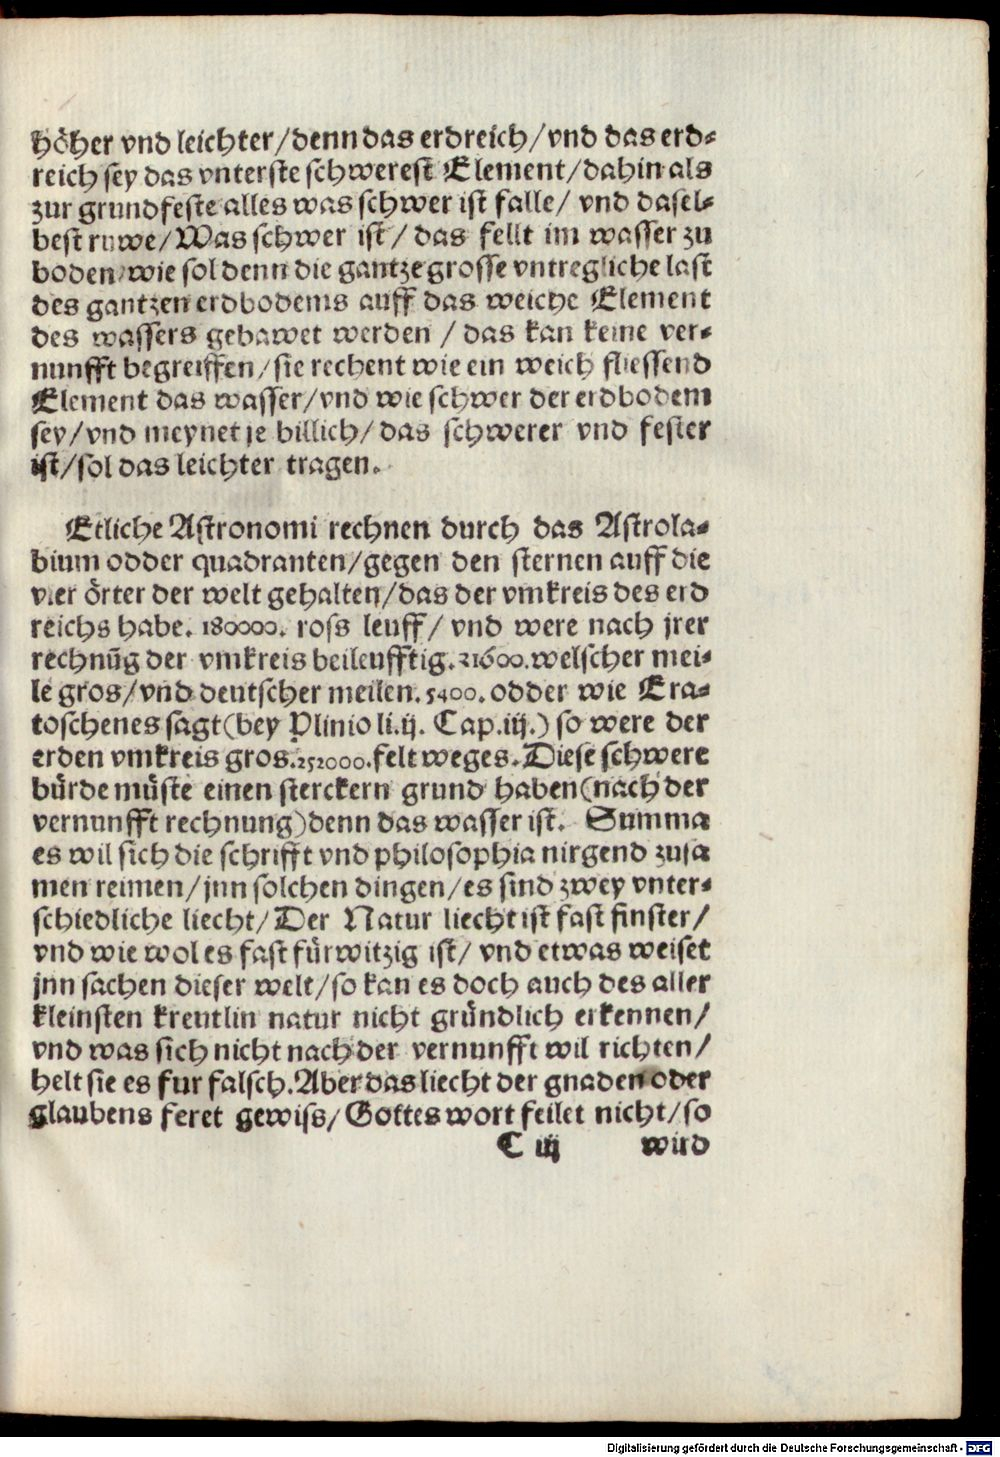 höher vnd leichter/denn das erdreich/vnd das erd-
reich sey das vnterste schwerest Element/dahin als
zur grundfeste alles was schwer ist falle/ vnd dasel-
best ruwe/Was schwer ist/ das fellt im wasser zu
boden/wie sol denn die gantze grosse vntregliche last
des gantzen erdbodems auff das weiche Element
des wassers gebawet werden / das kan keine ver-
nunfft begreiffen/sie rechent wie ein weich fliessend
Element das wasser/vnd wie schwer der erdbodem
sey/vnd meynet je billich/das schwerer vnd fester
ist/sol das leichter tragen.
Etliche Astronomi rechnen durch das Astrola-
bium odder quadranten/gegen den sternen auff die
vier örter der welt gehalten/das der vmkreis des erd
reichs habe. 180000. ross leuff/ vnd were nach jrer
rechnūg der vmkreis beileufftig.21600.welscher mei-
le gros/vnd deutscher meilen.5400.odder wie Era-
toschenes sagt(bey Plinio li.ij. Cap.iij.) so were der
erden vmkreis gros.252000.felt weges.Diese schwere
bürde müste einen sterckern grund haben(nach der
vernunfft rechnung)denn das wasser ist. Summa
es wil sich die schrifft vnd philosophia nirgend zusa
men reimen/jnn solchen dingen/es sind zwey vnter-
schiedliche liecht/Der Natur liecht ist fast finster/
vnd wie wol es fast fürwitzig ist/ vnd etwas weiset
jnn sachen dieser welt/so kan es doch auch des aller
kleinsten kreutlin natur nicht gründlich erkennen/
vnd was sich nicht nach der vernunfft wil richten/
helt sie es fur falsch.Aber das liecht der gnaden oder
glaubens feret gewiss/Gottes wort feilet nicht/so
C iij wird
Digitalisierung gefördert durch die Deutsche Forschungsgemeinschaft - DFG